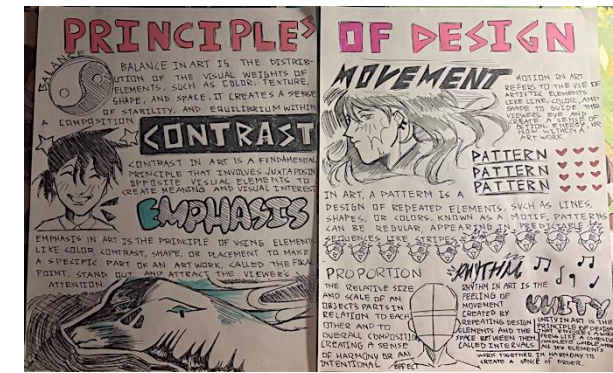 PRINCIPLES
BALANCE
BALANCE IN ART IS THE DISTRIB-
UTION OF THE VISUAL WEIGHTS OF
ELEMENTS, SUCH AS COLOR, TEXTURE,
SHAPE, AND SPACE. IT CREATES A SENSE
OF STABILITY, AND EQUILIBRIUM WITHIN
A COMPOSITION.
CONTRAST
CONTRAST IN ART IS A FUNDAMENTAL
PRINCIPLE THAT INVOLVES JUXTAPOSING
OPPOSITE VISUAL ELEMENTS TO
CREATE MEANING AND VISUAL INTEREST
EMPHASIS
EMPHASIS IN ART IS THE PRINCIPLE OF USING ELEMENTS
LIKE COLOR CONTRAST, SHAPE, OR PLACEMENT TO MAKE
A SPECIFIC PART OF AN ARTWORK, CALLED THE FOCAL
POINT, STAND OUT AND ATTRACT THE VIEWERS
ATTENTION
OF DESIGN
MOVEMENT
MOTION IN ART
REFERS TO THE USE OF
ARTISTIC ELEMENTS
LIKE LINE, COLOR, AND
SHAPE TO GUIDE THE
VIEWERS EYE AND
CREATE A SENSE OF
ENERGY, OR
FLOW WITHIN A
ART WORK
PATTERN
PATTERN
PATTERN
IN ART, A PATTERN IS A
DESIGN OF REPEATED ELEMENTS, SUCH AS LINES,
SHAPES, OR COLORS, KNOWN AS A MOTIF, PATTERNS
CAN BE REGULAR, APPEARING IN PREDICTABLE
SEQUENCES LIKE STRIPES
PROPORTION
THE RELATIVE SIZE
AND SCALE OF AN
OBJECTS PARTS IN
RELATION TO EACH
OTHER AND TO
OVERALL COMPOSITION
CREATING A SENSE
OF HARMONY OR AN
INTENTIONAL EFFECT
RHYTHM
RHYTHM IN ART IS THE
FEELING OF
MOVEMENT
CREATED BY
REPEATING DESIGN
ELEMENTS AND THE
SPACE BETWEEN THEM
CALLED INTERVALS
UNITY
UNITY IN ART IS THE
PRINCIPLE OF DESIGN
THAT ENSURES A
COMPLETE WHOLE
ALL ITS ELEMENTS
WORK TOGETHER IN HARMONY TO
CREATE A SENSE OF ORDER.